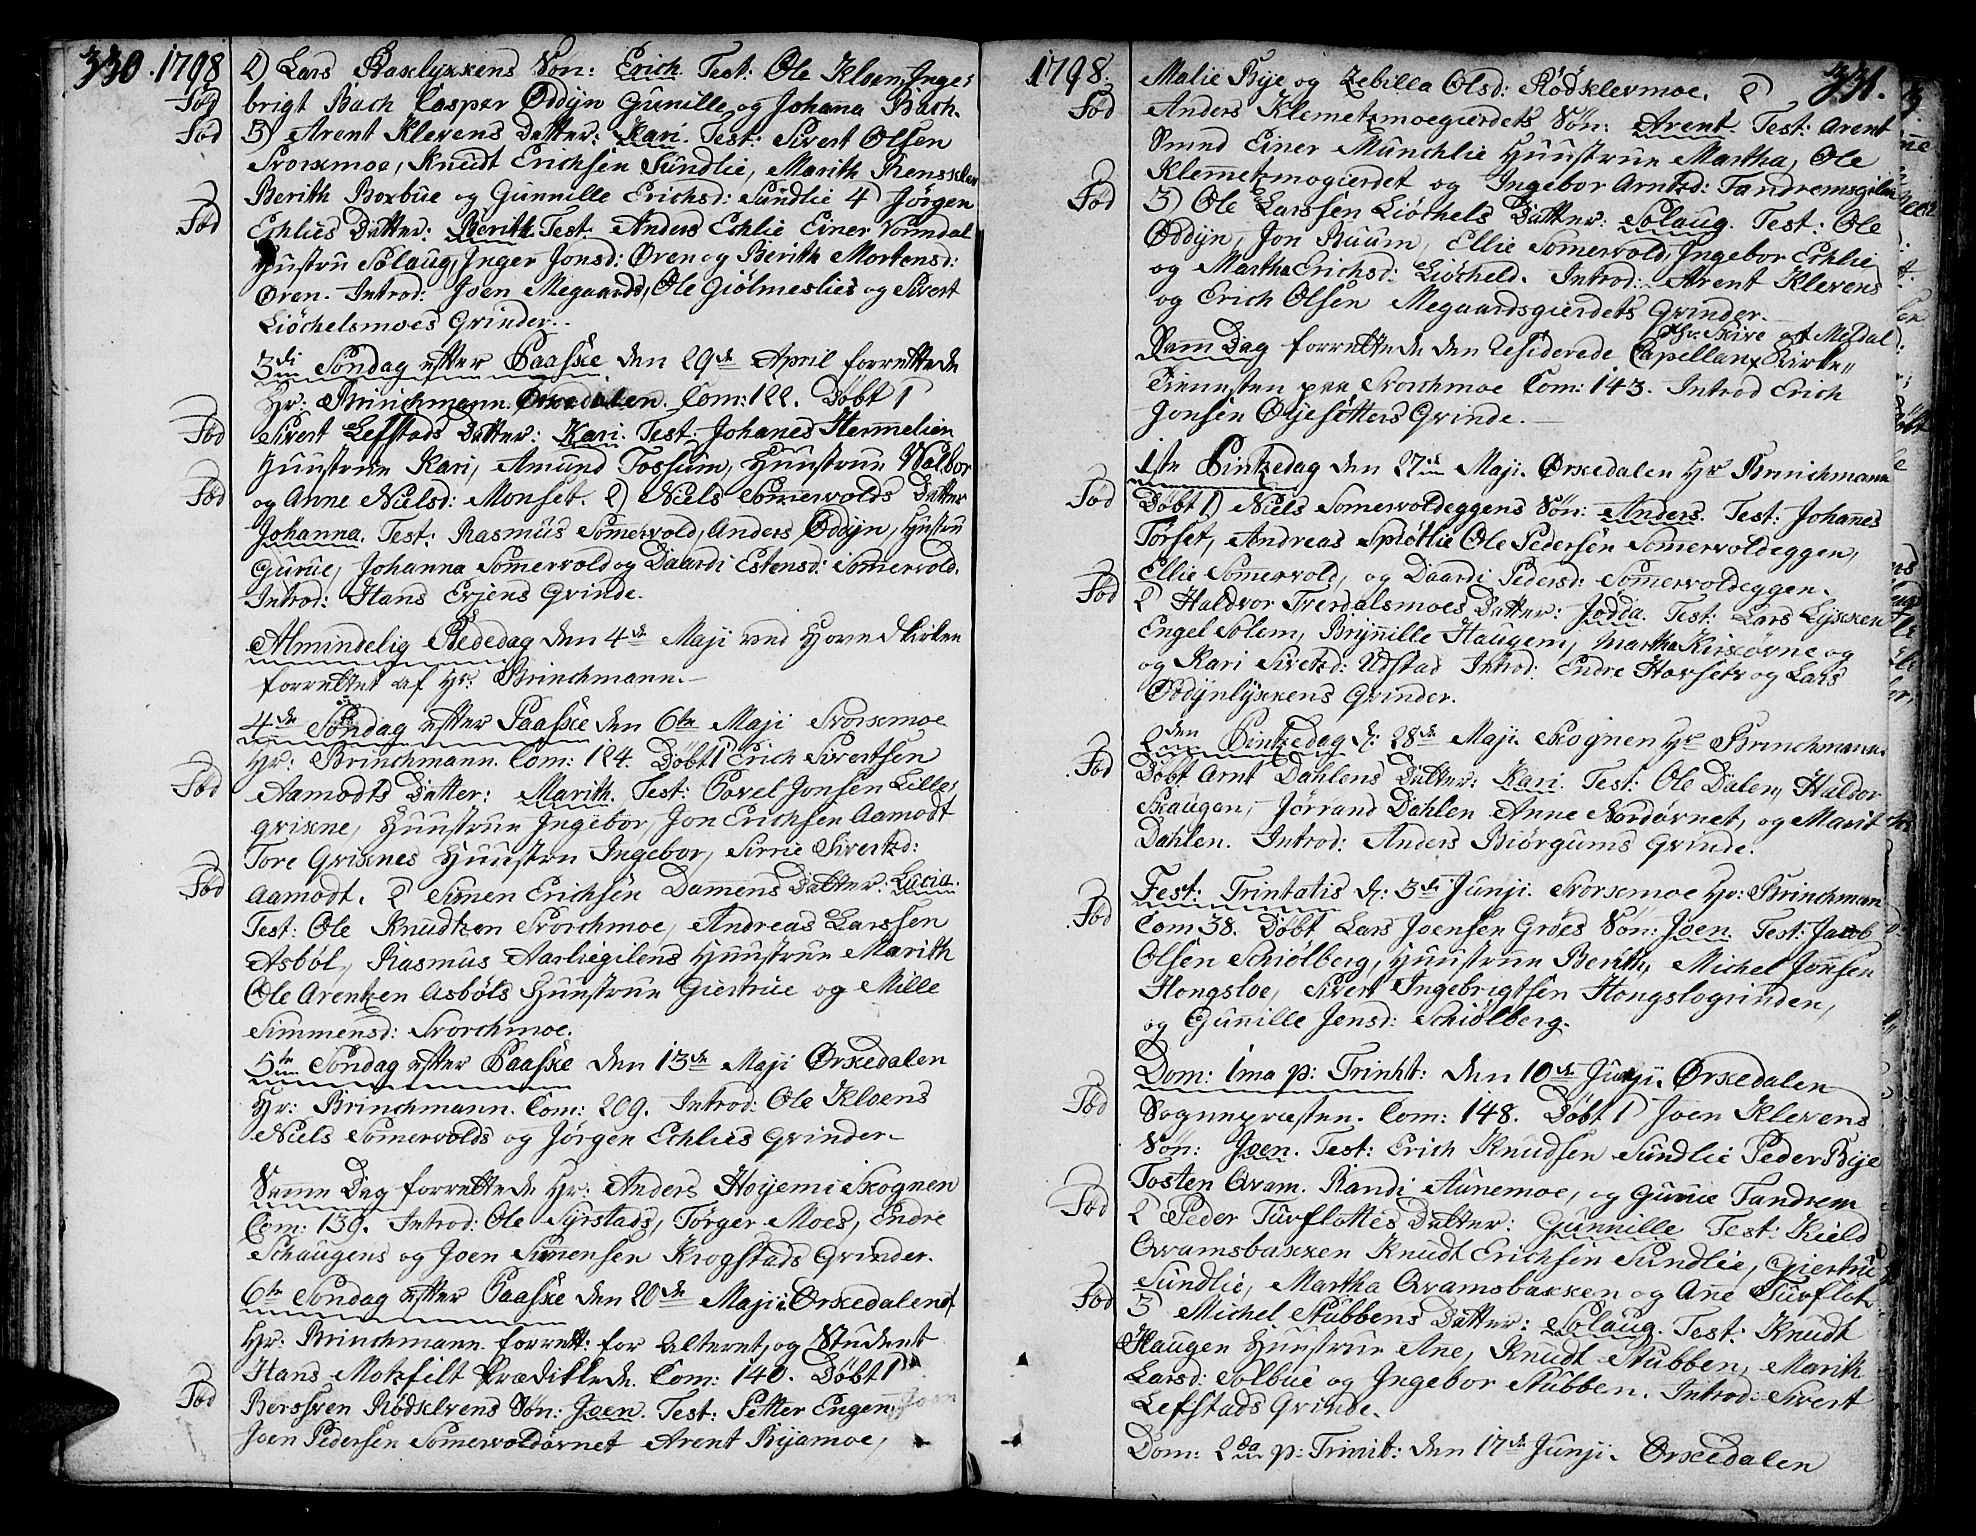 330. 1798
2) Lars Baklykkens Søn: Erich. Test: Ole Kloen, Inge-
Fød
brigt Bach Casper Oddyn Gunille og Johana Bach.
Fød
3) Arent Klevens Datter: Kari. Test: Sivert Olsen
Svorkmoe, Knudt Erichsen Sundlie, Marith
Berith Boxbue og Gunnille Erichsd: Sundlie 4) Jørgen
Fød
Echlies Datter: Berith. Test: Anders Echlie Einer Vormdal
Hustru Solaug, Inger Jonsd: Øren og Berith Mortensd:
Øren. Introd: Joen Megaards, Ole Giølmeslies og Sivert
Liøchelsmoes Qvinder.
3di Søndag efter Paaske den 29de April forrettede
Hr: Brinchmann. Orkedalen. Com: 122. Døbt 1)
Fød
Sivert Lefstads Datter: Kari. Test: Johanes Hermelien
Huustrue Kari, Amund Fossum, Huustrue Walbor
Fød
og Anne Nielsd: Monset. 2) Niels Somervolds Datter
Johanna. Test: Rasmus Somervold, Anders Oddyn, Hustru
Gurue, Johanna Somervold og Daardi Estensd: Somervold.
Introd: Hans Evjens Qvinde.
Almindelig Bededag den 4de Maji ved Hovedkirken
forrettet af Hr: Brinchmann.
4de Søndag efter Paaske den 6te Maji Svorkmoe
Hr: Brinchmann. Com: 124. Døbt 1) Erich Sivertsen
Fød
Aamodts Datter: Marith. Test: Povel Jonsen Lille-
griskne, Huustrue Ingebor, Jon Erichsen Aamodt
Tore Grisknes Huustru Ingebor, Sirrie Sivertsd:
Fød
Aamodt. 2) Simen Erichsen Dammens Datter: Lucia.
Test: Ole Knudtzen Svorchmoe, Andreas Larssen
Asbøl, Rasmus Aarliegilens Huustrue Marith
Ole Arentzen Asbøls Huustrue Giertrue og Mille
Simmensd: Svorchmoe.
5te Søndag efter Paaske den 13de Maji Ørkedalen
Hr: Brinchmann. Com: 209. Introd: Ole Kloens
Niels Somervolds og Jørgen Echlies Qvinder.
Samme Dag forrettede Hr: Anders Hoijem i Skognen
Com: 130. Introd: Ole Syrstads, Tørger Moes, Endre
Schaugens og Joen Simensen Krogstads Qvinder.
6te Søndag efter Paaske den 20de Maji Ørkedalen
Hr: Brinchmann forrett: for Alteret, og Student
Hans Motzfelt Prædikkede. Com: 140. Døbt 1)
Fød
Berssven Rødklevens Søn: Joen. Test: Petter Engen,
Joen Pedersen Somervoldørnet Arent Byamoe,
1798. 331.
Malie Bye og Zebilla Olsd: Rødklevmoe. 2)
Fød
Anders Klemetzmoegierdets Søn: Arent. Test: Arent
Smed Einer Munchlie Huustrue Martha, Ole
Klemetzmogierdet og Ingebor Arntsd: Tandremsgilen
Fød
3) Ole Larssen Liøchels Datter: Solaug. Test: Ole
Oddyn, Jon Buum, Ellie Somervold, Ingebor Echlie
og Martha Erichsd: Liøcheld. Introd: Arent Klevens
og Erich Olsen Megaardsgierdets Qvinder.
Sam Dag forrettede den Residerede Capellan Kirke-
Tienesten paa Svorchmoe Com: 143. Introd Erich
Jonsen Øyesetters Qvinde.
1ste Pintzedag den 27de Maji. Ørkedalen Hr Brinchmann
Fød
Døbt 1) Niels Somervoldeggens Søn: Anders. Test: Johanes
Torset, Andreas Spiøtlie Ole Pedersen Somervoldeggen,
Ellie Somervold, og Daardi Pedersd: Somervoldeggen.
Fød
2 Haldvor Trerdalsmoes Datter: Jødda. Test: Lars Lykken
Engel Solem, Brynnille Haugem, Martha Kirkørne og
og Kari Sivertsd: Udstad Introd: Endre Horsets og Lars
Oddynlykkens Qvinder.
2den Pintzedag d: 28de Maji. Skognen Hr Brinchmann.
Fød
Døbt Arnt Dahlens Datter: Kari. Test: Ole Dalen, Haldor
Skaugan, Jørrand Dahlen Anne Nordørnet, og Marit
Dahlen. Introd: Anders Biørgums Qvinde.
Fest: Trinitatis d: 3die Junji. Svorkmoe Hr: Brinchman
Fød
Com 38. Døbt Lars Joensen Groes Søn: Joen. Test: Jacob
Olsen Schiølberg, Huustrue Berith, Michel Jonsen
Hongsloe, Sivert Ingebrigtsen Hongslogrinden,
og Gunnille Jensd: Schiølberg.
Dom: 1ma p: Trinit: den 10de Junji. Ørkedalen
Fød
Sognepræsten. Com: 148. Døbt 1) Joen Klevens
Søn: Joen. Test: Erich Knudsen Sundlie Peder Bye
Tosten Qvam. Randi Aunemoe, og Gurue Tandrem
Fød
2 Peder Turflottes Datter: Gunnille Test: Kield
Qvamsbakken Knudt Erichsen Sundlie, Giertrue
Sundlie, Martha Qvamsbakken og Ane Turflot
Fød
3 Michel Stubbens Datter: Solaug. Test: Knudt
Haugen Huustrue Ane, Knudt Stubben, Marith
Larsd: Solbue og Ingebor Stubben. Introd: Sivert
Lefstads Qvinde.
Dom: 2da p: Trinit: den 17de Junji. Ørkedalen